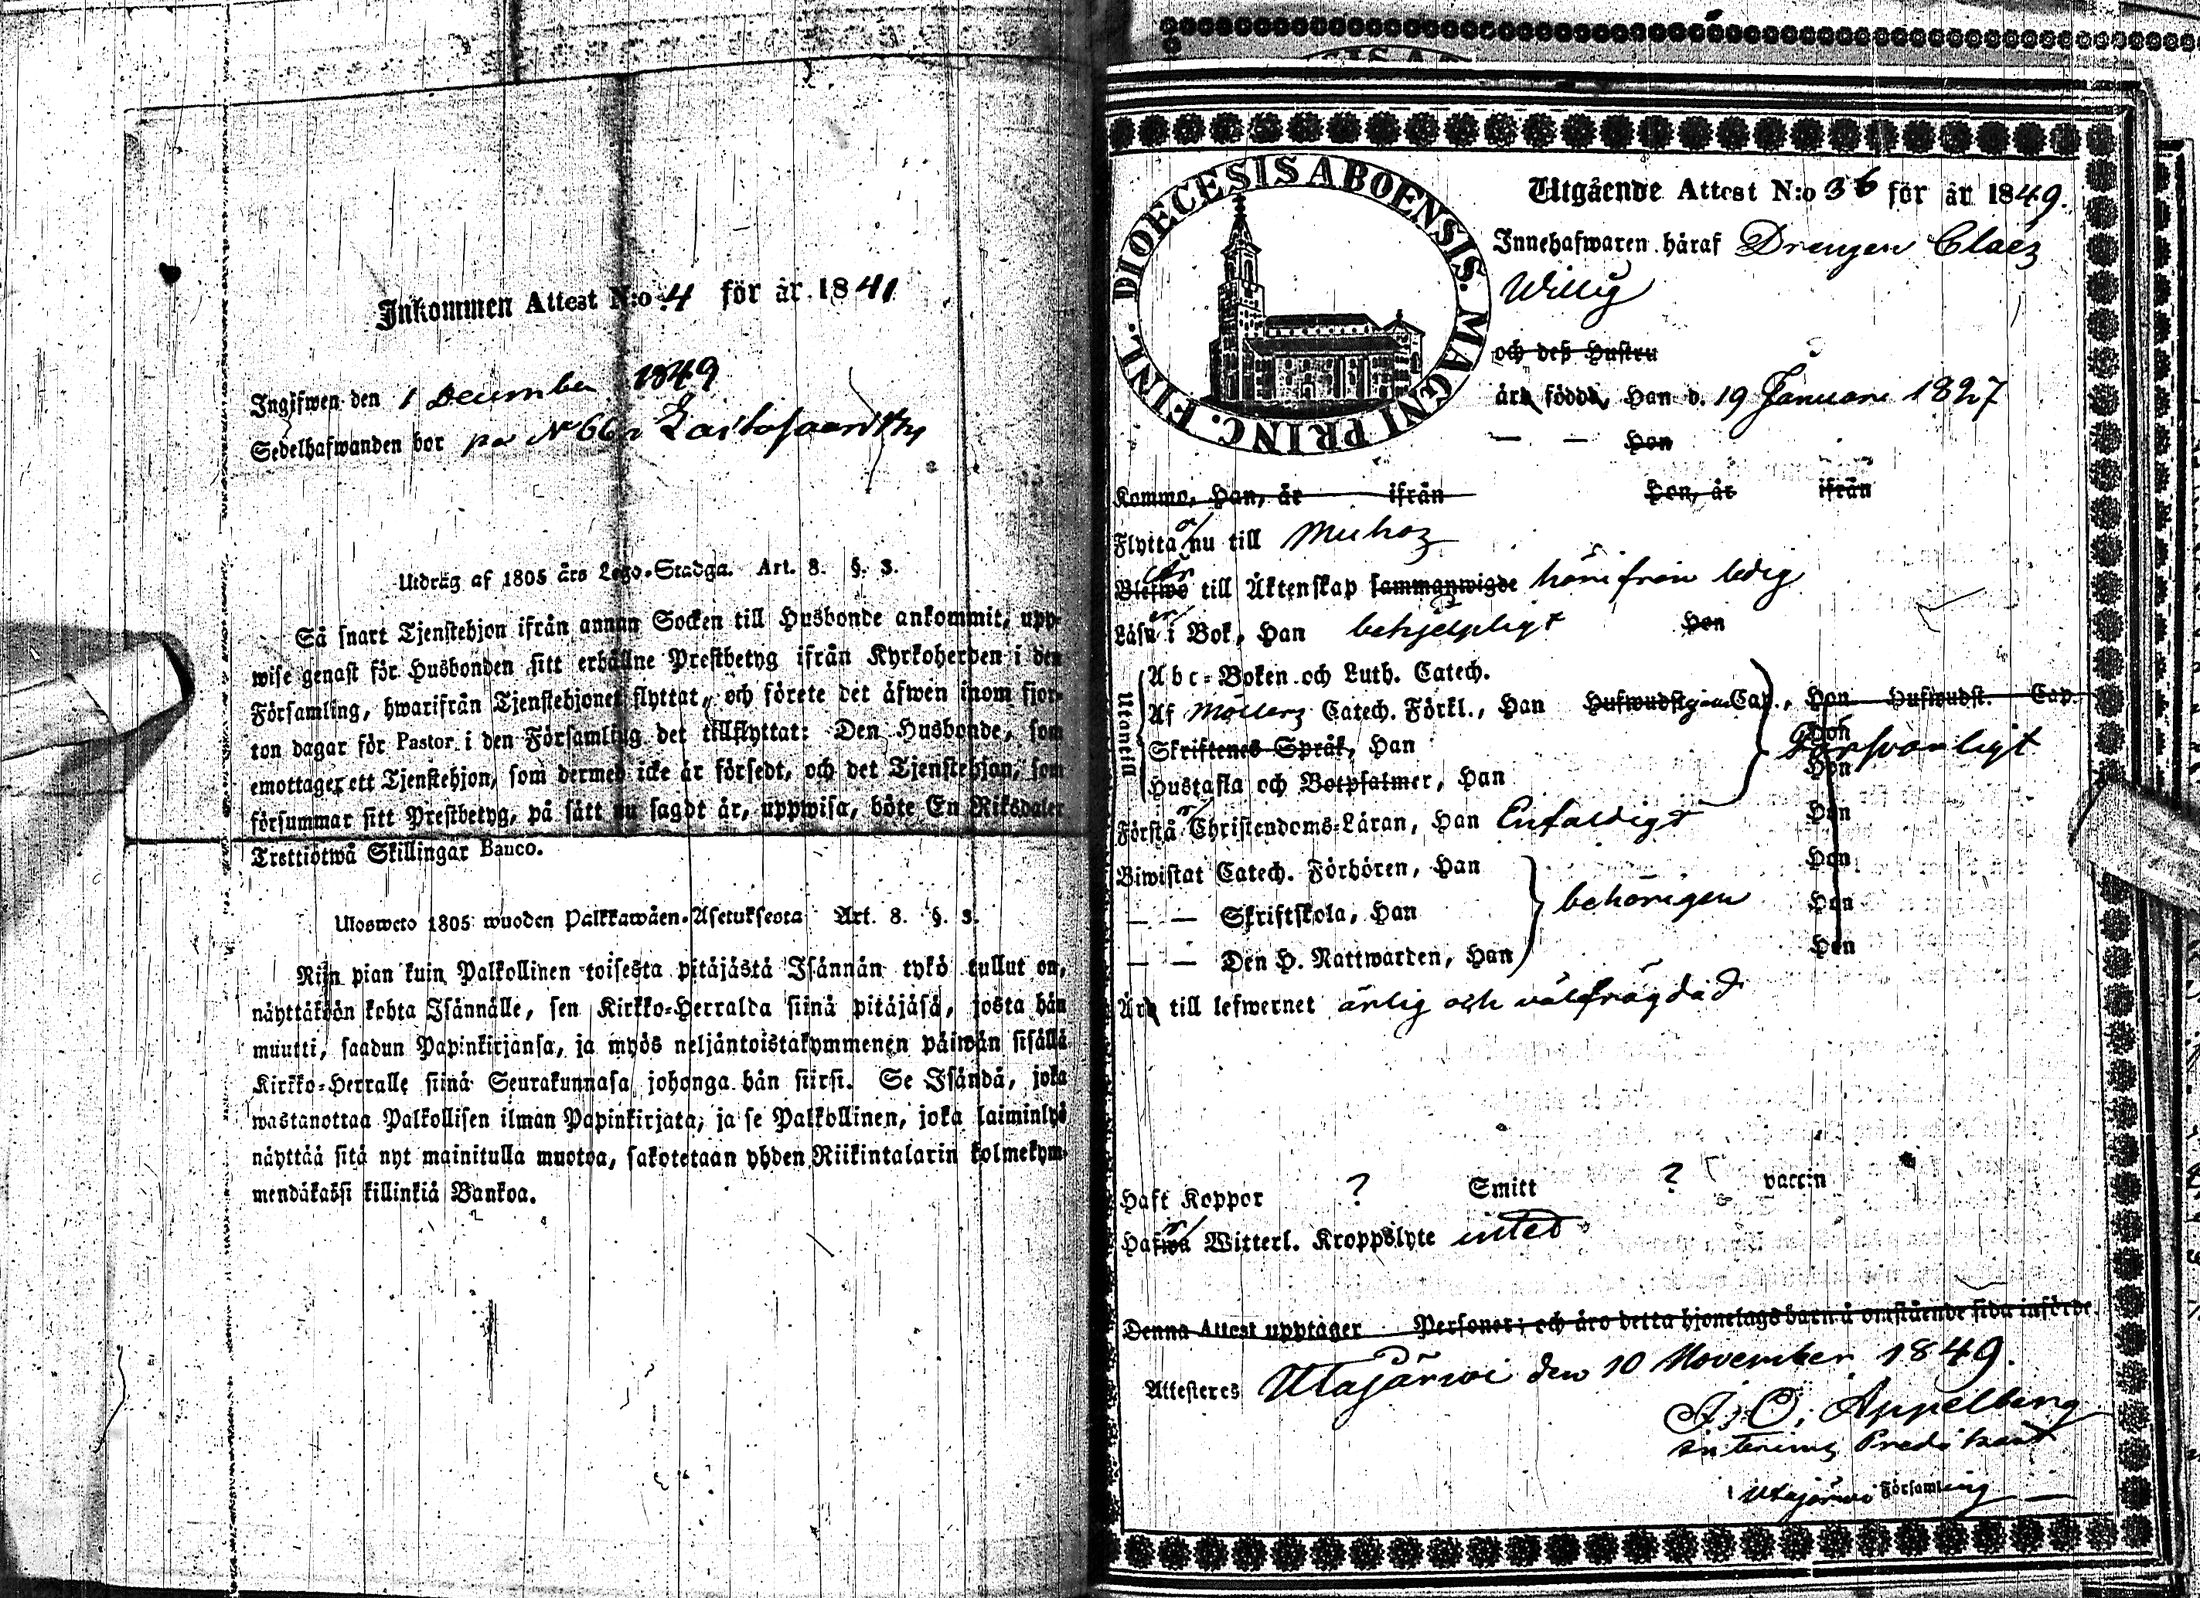 Inkommen Attest N:o 4 för år 1841
Ingifwen den 1 December 1849
Sedelhafwanden bor på N 66
Utdrag af 1805 års Lego-Stadga. Art. 8. §. 3.
Så snart Tjenstehjon ifrån annan Socken till Husbonde ankommit, upp-
wise genast för Husbonden sitt erhållne Prestbetyg ifrån Kyrkoherden i den
Församling, hwarifrån Tjenstehjonet flyttat, och förete det äfwen inom fjor-
ton dagar för Pastor i den Församling det tillflyttat: Den Husbonde, som
emottager ett Tjenstehjon, som dermed icke är försedt, och det Tjenstehjon, som
försummar sitt Prestbetyg, på sätt nu sagdt är, uppwisa, böte En Riksdaler
Trettiotwå Skillingar Banco.
Ulosweto 1805 wuoden Palkkawäen-Asetuksesta Art. 8. §. 3.
Niin pian kuin Palkollinen toisesta pitäjästä Isännän tykö tullut on,
näyttäköön kohta Isännälle, sen Kirkko-Herralda siinä pitäjäsä, josta hän
muutti, saadun Papinkirjansa, ja myös neljäntoistakymmenen päiwän sisällä
Kirkko-Herralle siinä Seurakunnasa johonga hän siirsi. Se Isändä, joka
wastanottaa Palkollisen ilman Papinkirjata, ja se Palkollinen, joka laiminlyö
näyttää sitä nyt mainitulla muotoa, sakotetaan yhden Riikintalarin kolmekym-
mendäkaksi killinkiä Bankoa.
DIOECESIS ABOENSIS. MAGNI PRINC. FINL.
Utgående Attest N:o 36 för år 1849.
Innehafwaren häraf Drengen Claës
Willig
och deß Hustru
äro födde, Han d. 19 Januari 1827
— — Hon
Komma, Han, år ifrån Hon, år ifrån
Flytta nu till Muhos
Blefwo till Äktenskap sammanwigde härifrån ledig
Läsa i Bok, Han behjelpligt Hon
Utantill
Abc-Boken och Luth. Catech.
Af Möllers Catech. Förkl., Han Hufwudst Cap., Hon Hufwudst. Cap.
Skriftenes Språk, Han Hon Försvarligt
Hustafla och Botpsalmer, Han Hon
Förstå Christendoms-Läran, Han Enfaldigt Hon
Biwistat Catech. Förhören, Han Hon
— — Skriftskola, Han behörigen Hon
— — Den H. Nattwarden, Han Hon
Äro till lefwernet ärlig och välfrägdad
Haft Koppor ? Smitt ? vaccin
Hafwa Witterl. Kroppslyte inted
Denna Attest upptager Personer; och äro detta hjonelags barn å omstående sida införde.
Attesteres Utajärvi den 10 November 1849.
J. O. Appelberg
Interims Predikant
i Utajärvi Församling